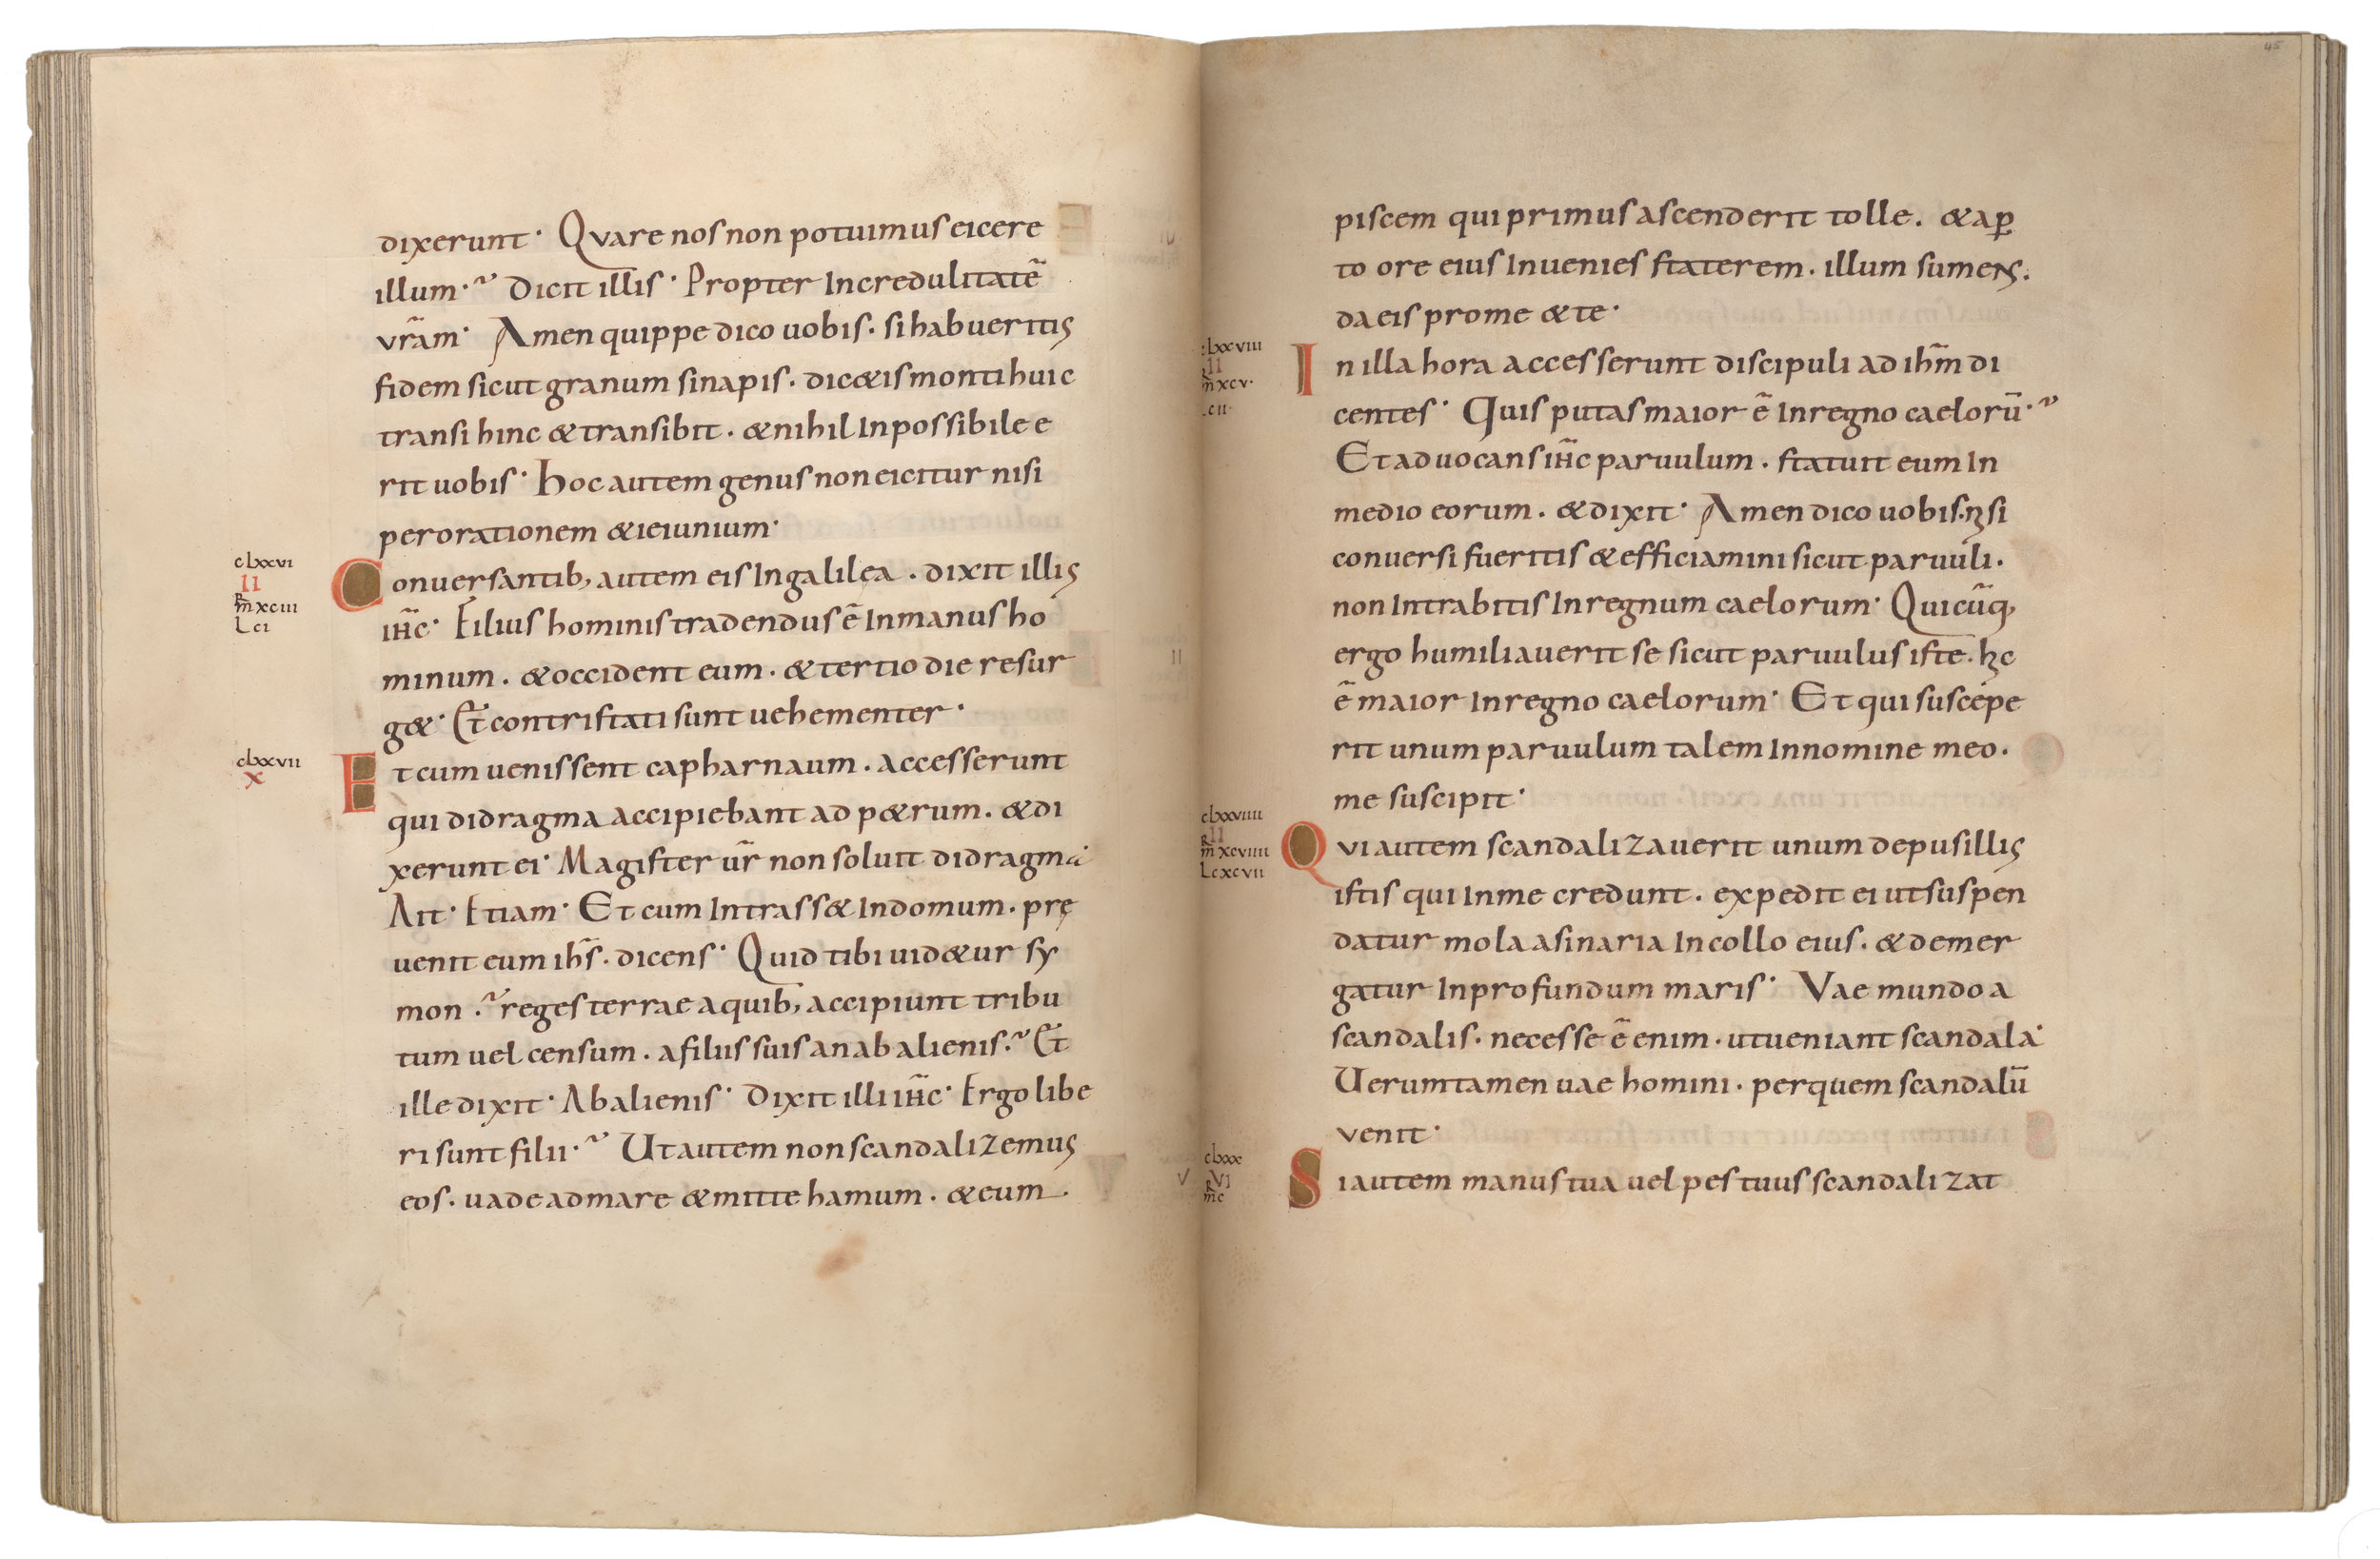 dixerunt· Qvare nos non potuimus eicere
illum·? Dicit illis· Propter Incredulitatē
vr̄am· Amen quippe dico uobis. si habueritis
fidem sicut granum sinapis. dic&is monti huic
transi hinc & transibit. & nihil Inpossibile e
rit uobis· hoc autem genus non eicitur nisi
per orationem & ieiunium·
clxxvi
II
R
m̄ xciii
L ci
Conuersantib; autem eis In galilęa. dixit illis
ih̄c· Filius hominis tradendus ē In manus ho
minum. & occident eum. & tertio die resur
g&· Et contristati sunt uehementer·
clxxvii
X
Et cum uenissent capharnaum. accesserunt
qui didragma accipiebant ad p&rum. & di
xerunt ei· Magister ūr non soluit didragma·
Ait· Etiam· Et cum Intrass& In domum. prę
uenit eum ih̄s. dicens· Quid tibi uid&ur sy
mon.? reges terrae a quib; accipiunt tribu
tum uel censum. a filiis suis an ab alienis.? Et
ille dixit· Ab alienis· Dixit illi ih̄c· Ergo libe
ri sunt filii·? Ut autem non scandalizemus
eos. uade ad mare & mitte hamum. & eum
45
piscem qui primus ascenderit tolle. & aꝑ
to ore eius Inuenies staterem. illum sumens.
da eis pro me & te·
clxxviii
II
R
m̄ xcv·
L cii·
In illa hora accesserunt discipuli ad ih̄m di
centes· Quis putas maior ē In regno caelorū·?
Et aduocans ih̄c paruulum. statuit eum In
medio eorum. & dixit· Amen dico uobis. nisi
conuersi fueritis & efficiamini sicut paruuli.
non Intrabitis In regnum caelorum· Quicūq;
ergo humiliauerit se sicut paruulus iste. hic
ē maior In regno caelorum· Et qui suscepe
rit unum paruulum talem In nomine meo.
me suscipit·
clxxviiii
II
R
m̄ xcviiii
L cxcvii
Qvi autem scandalizauerit unum de pusillis
istis qui In me credunt. expedit ei ut suspen
datur mola asinaria In collo eius. & demer
gatur In profundum maris· Vae mundo a
scandalis. necesse ē enim. ut ueniant scandala·
Uerumtamen uae homini. per quem scandalū
venit·
clxxx
VI
R
m̄ c
Si autem manus tua uel pes tuus scandalizat